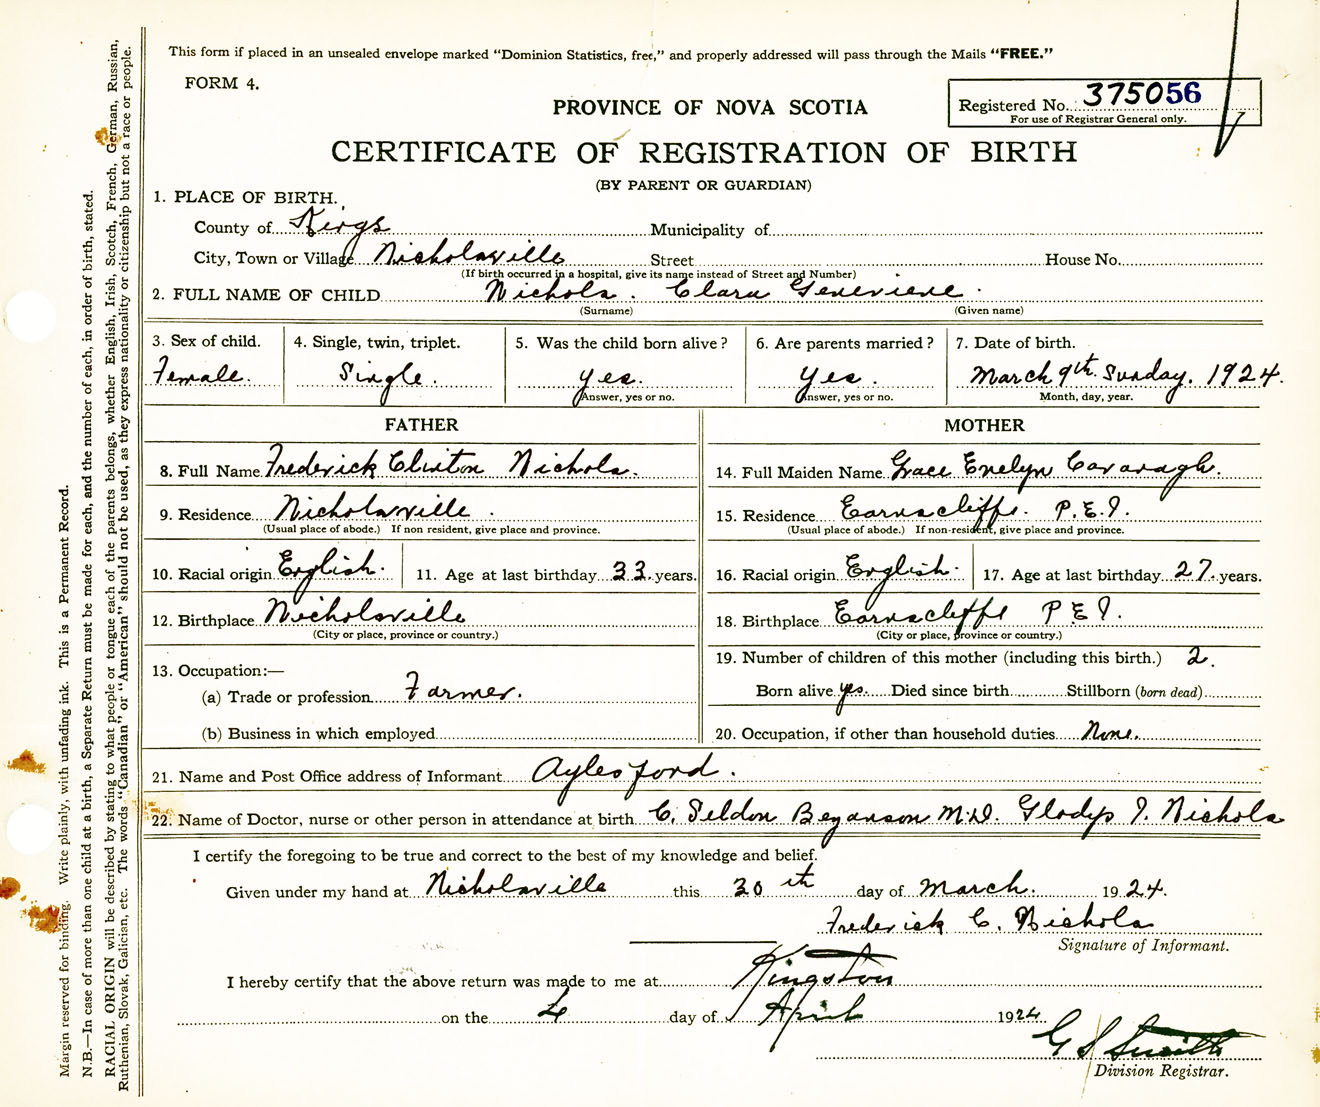 This form if placed in an unsealed envelope marked "Dominion Statistics, free," and properly addressed will pass through the Mails "FREE."
FORM 4.
Registered No. 375056
For use of Registrar General only.
PROVINCE OF NOVA SCOTIA
CERTIFICATE OF REGISTRATION OF BIRTH
(BY PARENT OR GUARDIAN)
1. PLACE OF BIRTH.
County of Kings Municipality of
City, Town or Village Nicholsville Street House No.
(If birth occurred in a hospital, give its name instead of Street and Number)
2. FULL NAME OF CHILD Nichols. Clara Genevieve.
(Surname) (Given name)
3. Sex of child. 4. Single, twin, triplet. 5. Was the child born alive? 6. Are parents married? 7. Date of birth.
Female. Single. yes. Yes. March 9th. Sunday. 1924.
Answer, yes or no. Answer, yes or no. Month, day, year.
FATHER MOTHER
8. Full Name Frederick Clinton Nichols. 14. Full Maiden Name Grace Evelyn Cavanagh.
9. Residence Nicholsville. 15. Residence Earnscliffe. P.E.I.
(Usual place of abode.) If non resident, give place and province. (Usual place of abode.) If non-resident, give place and province.
10. Racial origin English. 11. Age at last birthday 33. years. 16. Racial origin English. 17. Age at last birthday 27. years.
12. Birthplace Nicholsville 18. Birthplace Earnscliffe P.E.I.
(City or place, province or country.) (City or place, province or country.)
13. Occupation:— 19. Number of children of this mother (including this birth.) 2.
(a) Trade or profession Farmer. Born alive yes. Died since birth Stillborn (born dead)
(b) Business in which employed 20. Occupation, if other than household duties None.
21. Name and Post Office address of Informant Aylesford.
22. Name of Doctor, nurse or other person in attendance at birth C. Seldon M.D. Gladys I. Nichols
I certify the foregoing to be true and correct to the best of my knowledge and belief.
Given under my hand at Nicholsville this 30th day of March. 1924.
Frederick C. Nichols
Signature of Informant.
I hereby certify that the above return was made to me at Kingston
on the 4 day of April 1924
G S Smith
Division Registrar.
Margin reserved for binding. Write plainly, with unfading ink. This is a Permanent Record.
N.B.—In case of more than one child at a birth, a Separate Return must be made for each, and the number of each, in order of birth, stated.
RACIAL ORIGIN will be described by stating to what people or tongue each of the parents belongs, whether English, Irish, Scotch, French, German, Russian,
Ruthenian, Slovak, Galician, etc. The words "Canadian" or "American" should not be used, as they express nationality or citizenship but not a race or people.